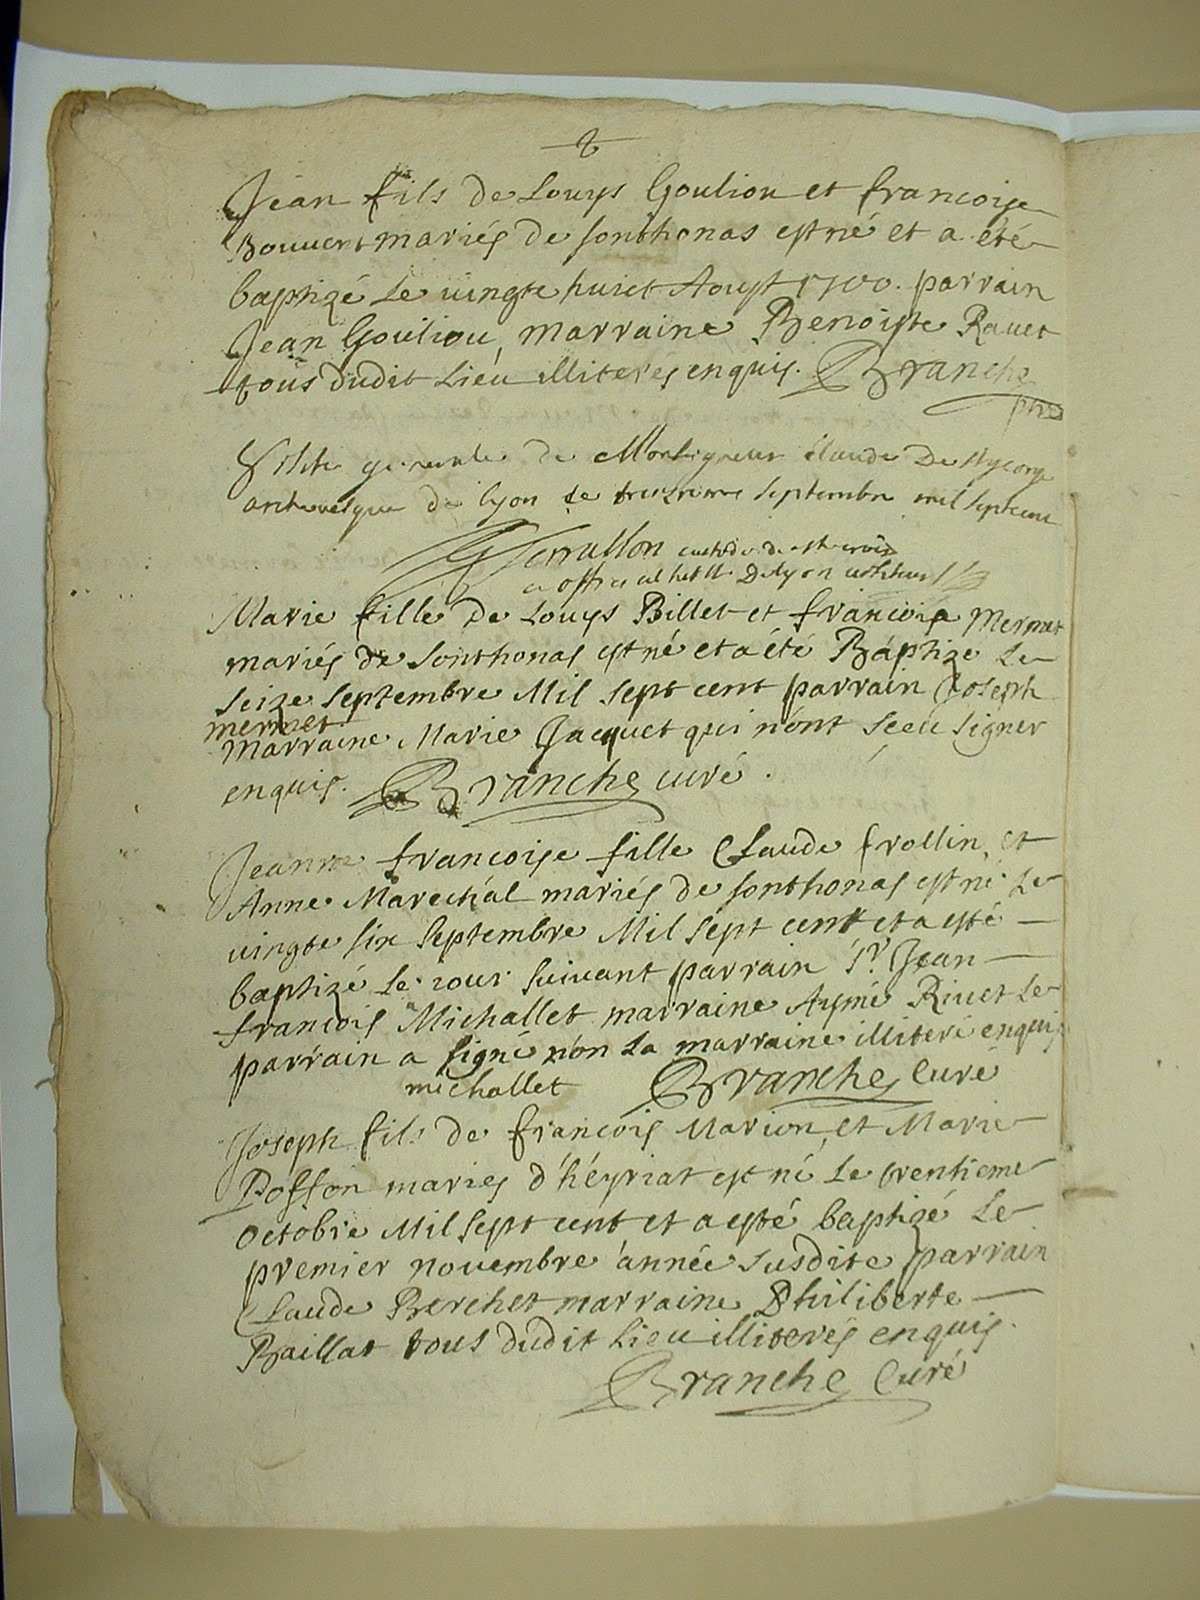 Jean fils de Louys Gouliou et francoise
Bouuent mariés de sonthonas est né et a été
baptizé Le uingte huict Aoust 1700. parrain
Jean Gouliou, marraine Benoiste Rauet
tous dudit Lieu illiteres enquis. Branche
ptre
Visite generale de Monseigneur Claude De St george
archevesque de lyon le treizieme septembre mil sept cent
Terrasson custode de ste croix
Marie fille de Louys Billet et francoise Mermet
mariés de sonthonas est né et a été Baptize Le
seize septembre Mil sept cent parrain Joseph
mermet
marraine Marie Jacquet qui n'ont sceu signer
enquis. Branche curé.
Jeanne francoise fille Claude frollin et
Anne Marechal mariés de sonthonas est né Le
uingte six septembre Mil sept cent et a esté
baptizé Le iour suivant parrain Sr. Jean
francois Michallet marraine Aymé Riuet Le
parrain a signé non La marraine illiteré enquis
michallet Branche Curé
Joseph fils de francois Marion et Marie
Poffon mariés d'héyriat est né Le trentieme
octobre Mil sept cent et a esté baptizé Le
premier nouembre année susdite parrain
Claude Berchet marraine Philiberte
Baillat tous dudit Lieu illiterés enquis.
Branche Curé